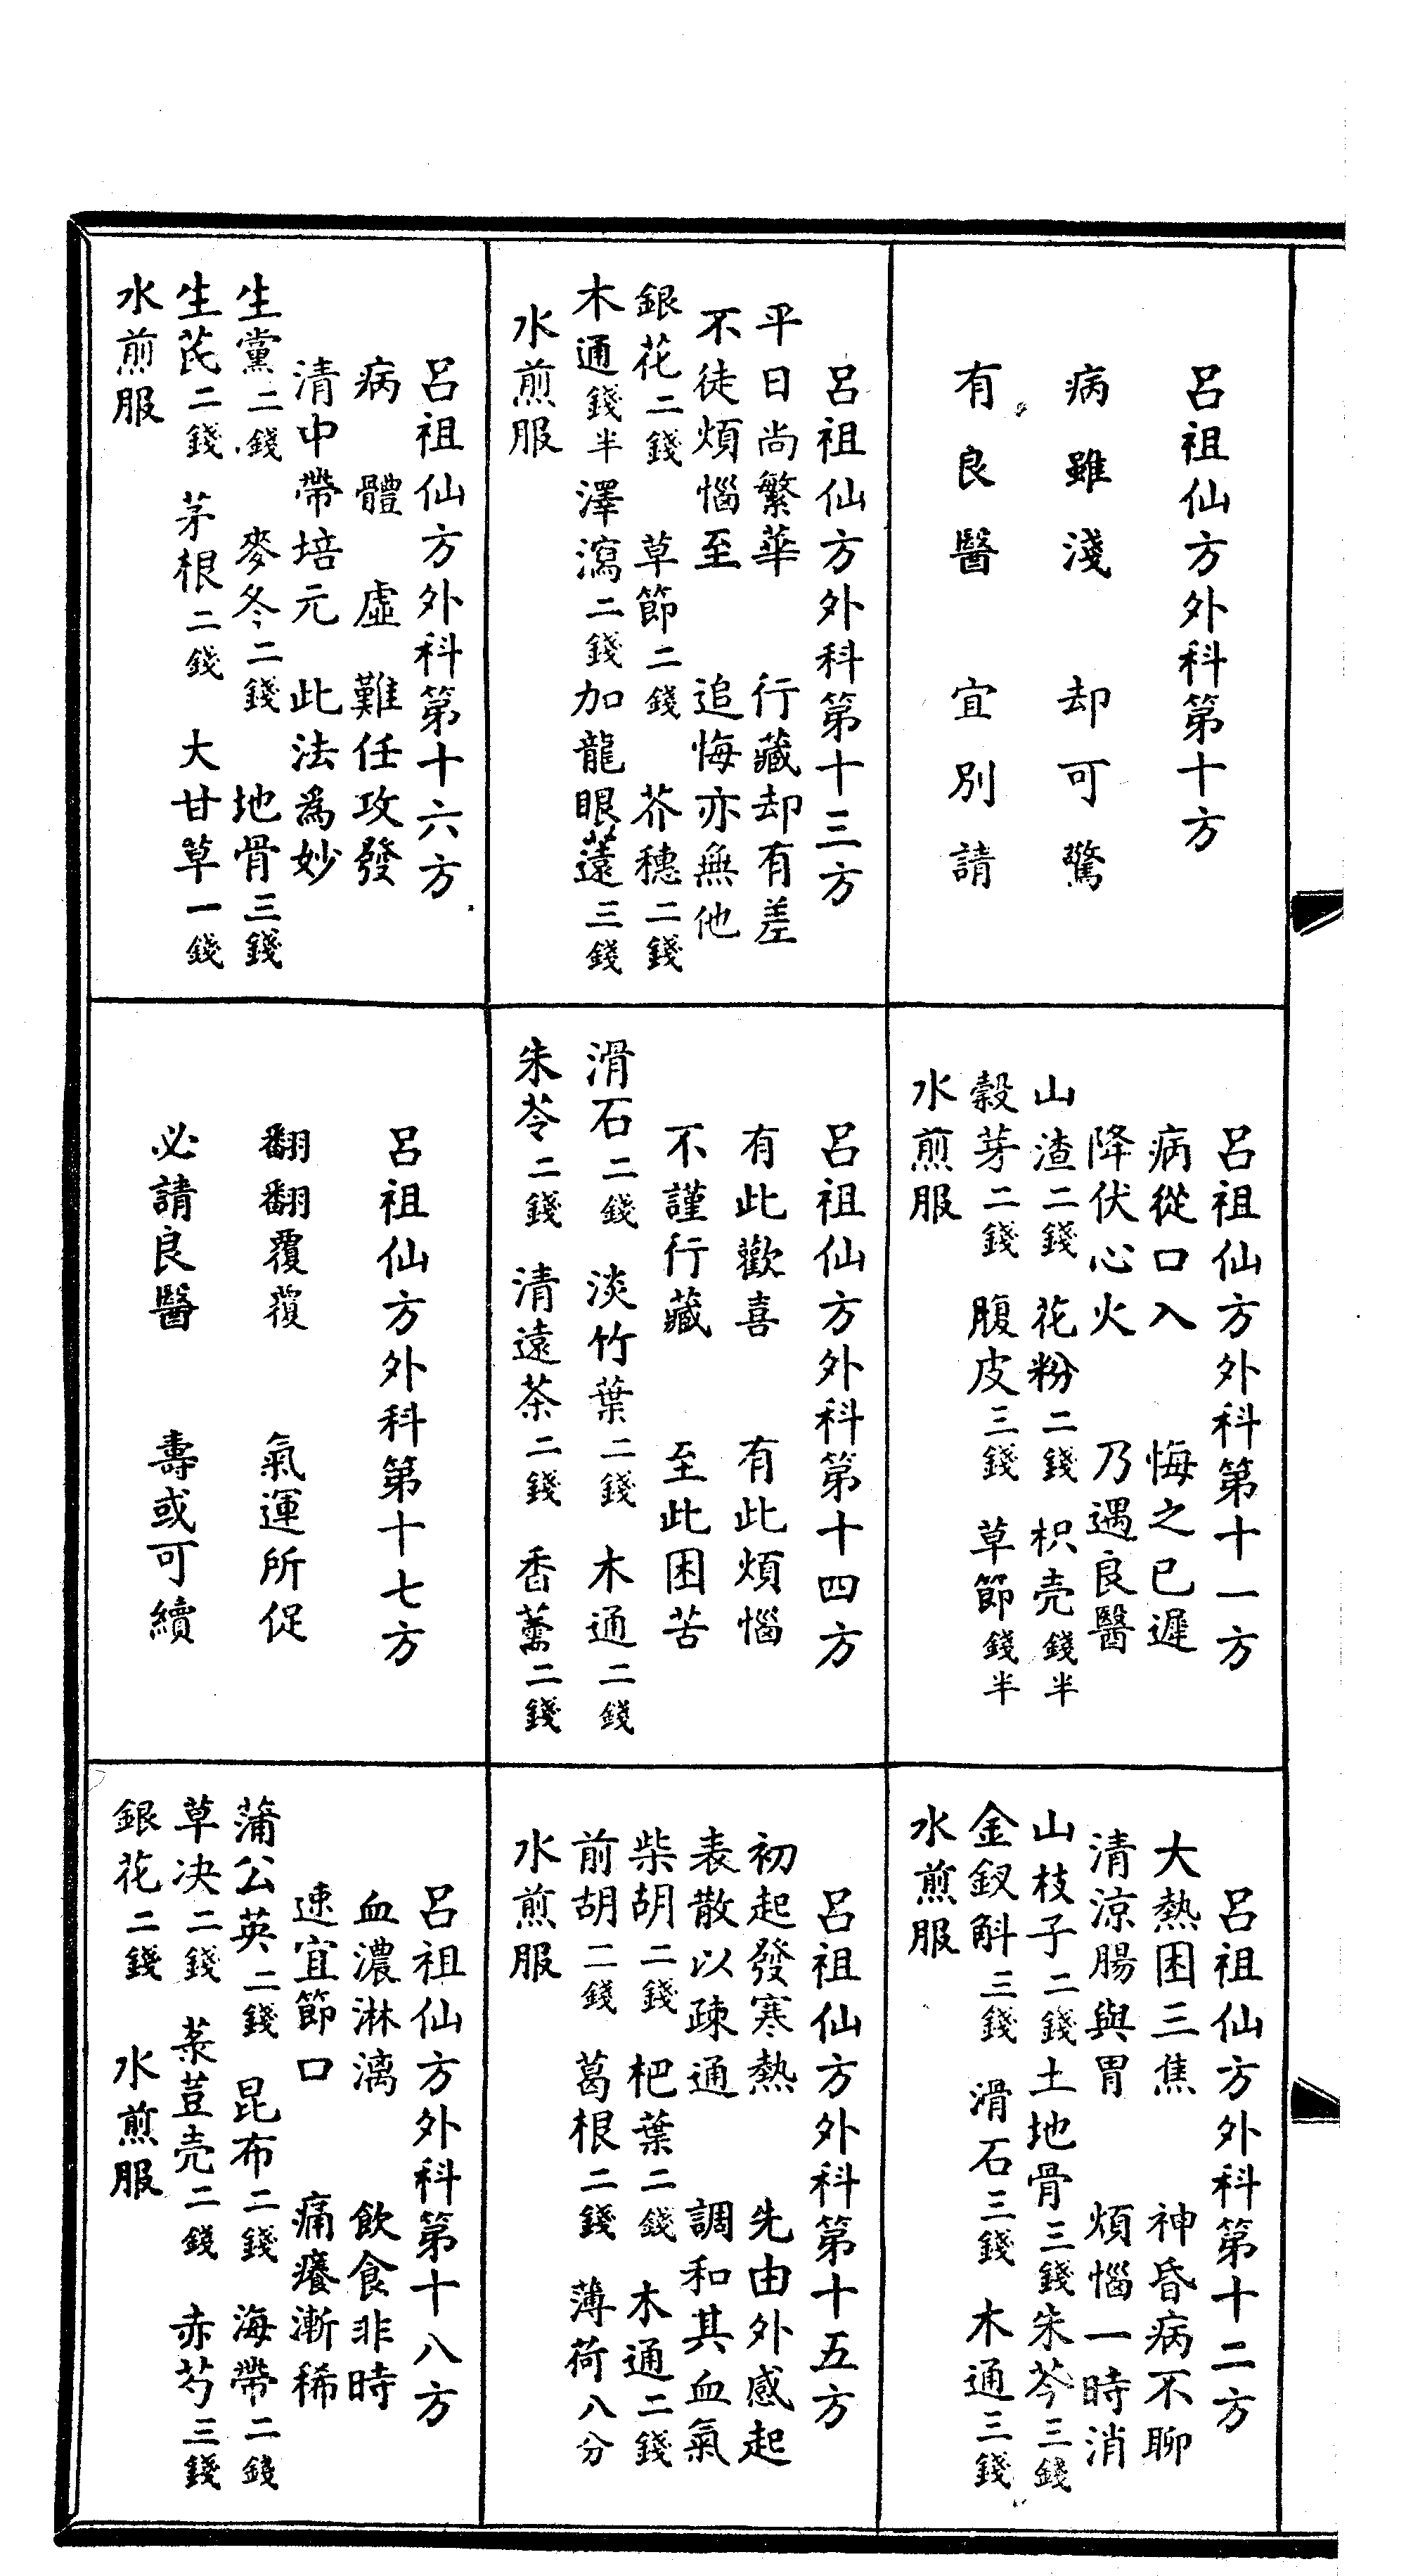 呂祖仙方外科第十方
病雖淺　却可驚
有良醫　宜別請
呂祖仙方外科第十一方
病從口入　悔之已遲
降伏心火　乃遇良醫
山渣二錢　花粉二錢　枳壳錢半
榖芽二錢　腹皮三錢　草節錢半
水煎服
呂祖仙方外科第十二方
大熱困三焦　神昏病不聊
清涼腸與胃　煩惱一時消
山枝子二錢土地骨三錢朱芩三錢
金釵斛三錢　滑石三錢　木通三錢
水煎服
呂祖仙方外科第十三方
平日尚繁華　行藏却有差
不徒煩惱至　追悔亦無他
銀花二錢　草節二錢　芥穗二錢
木通錢半澤瀉二錢加龍眼薳三錢
水煎服
呂祖仙方外科第十四方
有此歡喜　有此煩惱
不謹行藏　至此困苦
滑石二錢　淡竹葉二錢　木通二錢
朱苓二錢　清遠茶二錢　香薷二錢
呂祖仙方外科第十五方
初起發寒熱　先由外感起
表散以疎通　調和其血氣
柴胡二錢　杷葉二錢　木通二錢
前胡二錢　葛根二錢　薄荷八分
水煎服
呂祖仙方外科第十六方
病體虛難任攻發
清中帶培元　此法為妙
生黨二錢　麥冬二錢　地骨三錢
生芪二錢　茅根二錢　大甘草一錢
水煎服
呂祖仙方外科第十七方
翻翻覆覆　氣運所促
必請良醫　壽或可續
呂祖仙方外科第十八方
血濃淋漓　飲食非時
速宜節口　痛癢漸稀
蒲公英二錢　昆布二錢　海帶二錢
草决二錢　菉荳壳二錢　赤芍三錢
銀花二錢　水煎服